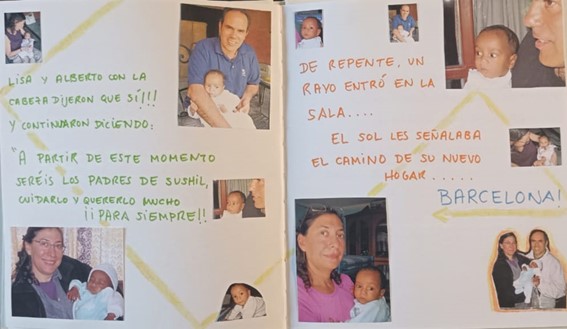 LISA Y ALBERTO CON LA
CABEZA DIJERON QUE SÍ!!!
Y CONTINUARON DICIENDO:
"A PARTIR DE ESTE MOMENTO
SERÉIS LOS PADRES DE SUSHIL,
CUIDARLO Y QUERERLO MUCHO
¡¡PARA SIEMPRE!!
DE REPENTE, UN
RAYO ENTRÓ EN LA
SALA....
EL SOL LES SEÑALABA
EL CAMINO DE SU NUEVO
HOGAR.....
BARCELONA!